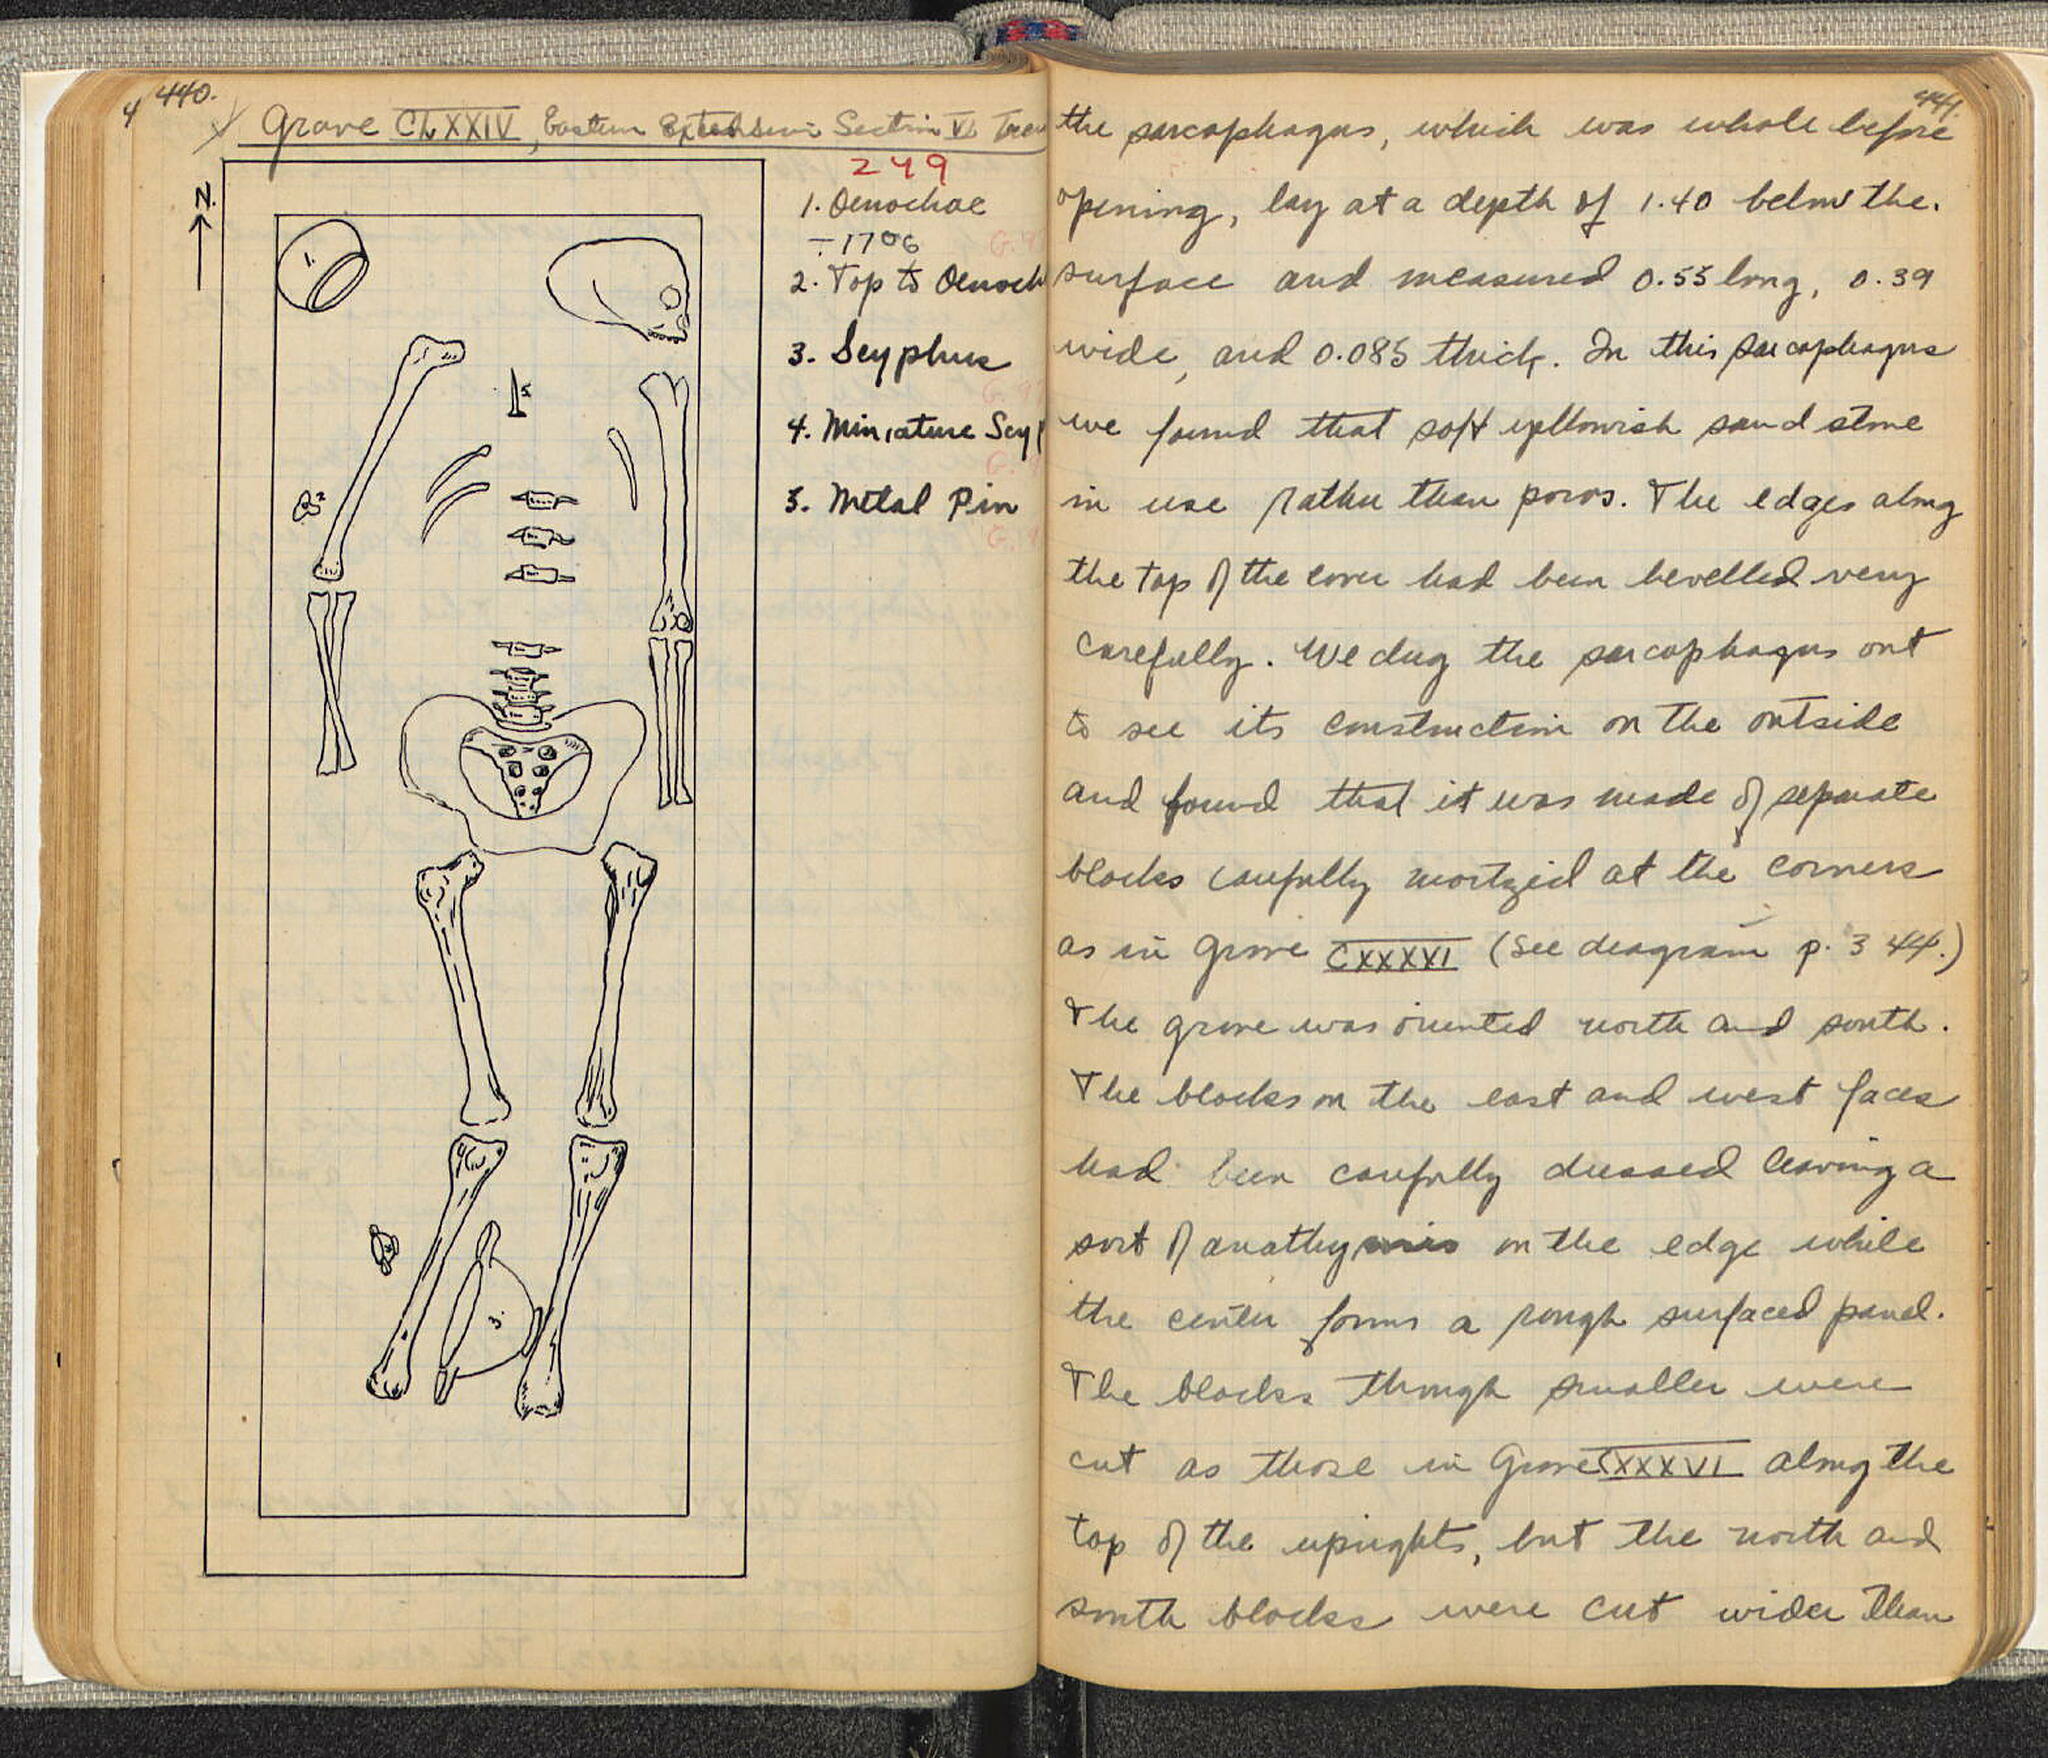 440.
Grave CLXXIV, Eastern Extension Section VI Tren
249
N.
1. Oenochoe
÷1706
2. Top to Oenoch
3. Scyphus
4. Miniature Scyp
5. Metal Pin
1.
2
5
3.
441.
the sarcophagus, which was whole before
opening, lay at a depth of 1.40 below the.
surface and measured 0.55 long, 0.39
wide, and 0.085 thick. In this sarcophagus
we found that soft yellowish sand stone
in use rather than poros. The edges along
the top of the cover had been bevelled very
carefully. We dug the sarcophagus out
to see its construction on the outside
and found that it was made of separate
blocks carefully mortzied at the corners
as in Grave CXXXXVI (See deagram p. 344.)
The grave was oriented north and south.
The blocks on the east and west faces
had been carefully dressed leaving a
sort of anathymis on the edge while
the center forms a rough surfaced panel.
The blocks though smaller were
cut as those in Grave CXXXVI along the
top of the uprights, but the north and
south blocks were cut wider than